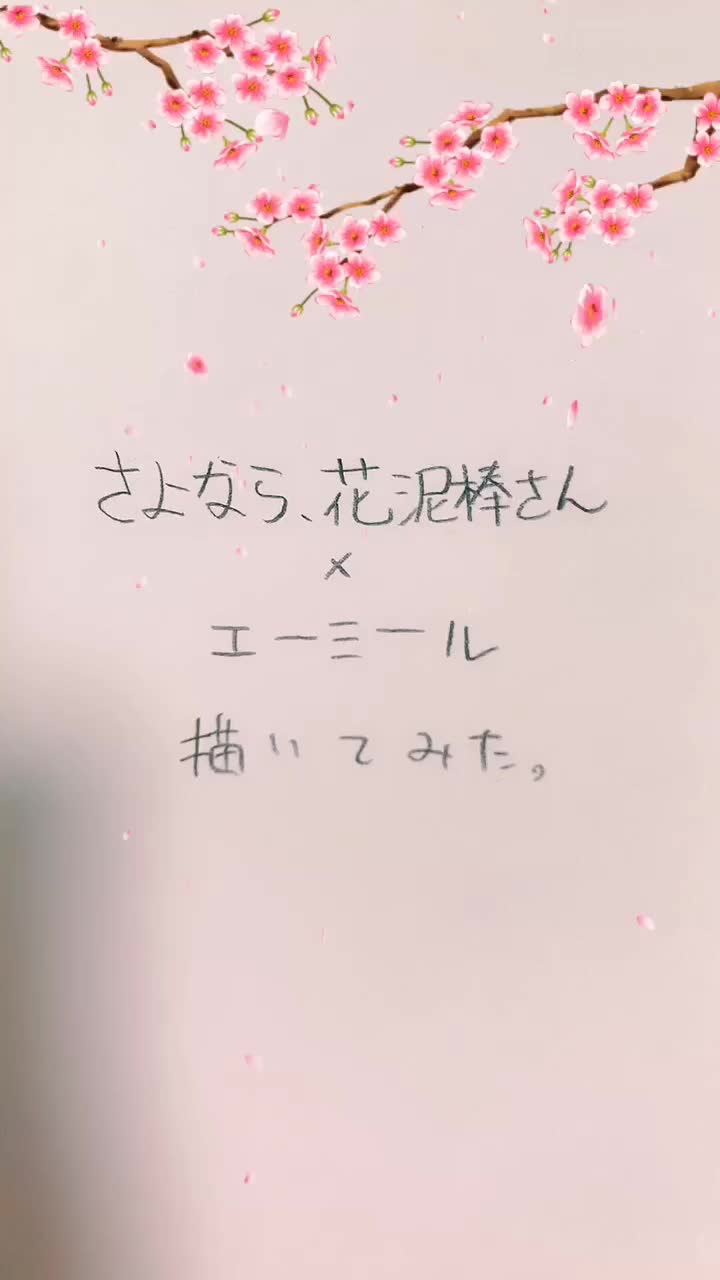 さよなら、花泥棒さん
×
エーミール
描いてみた。